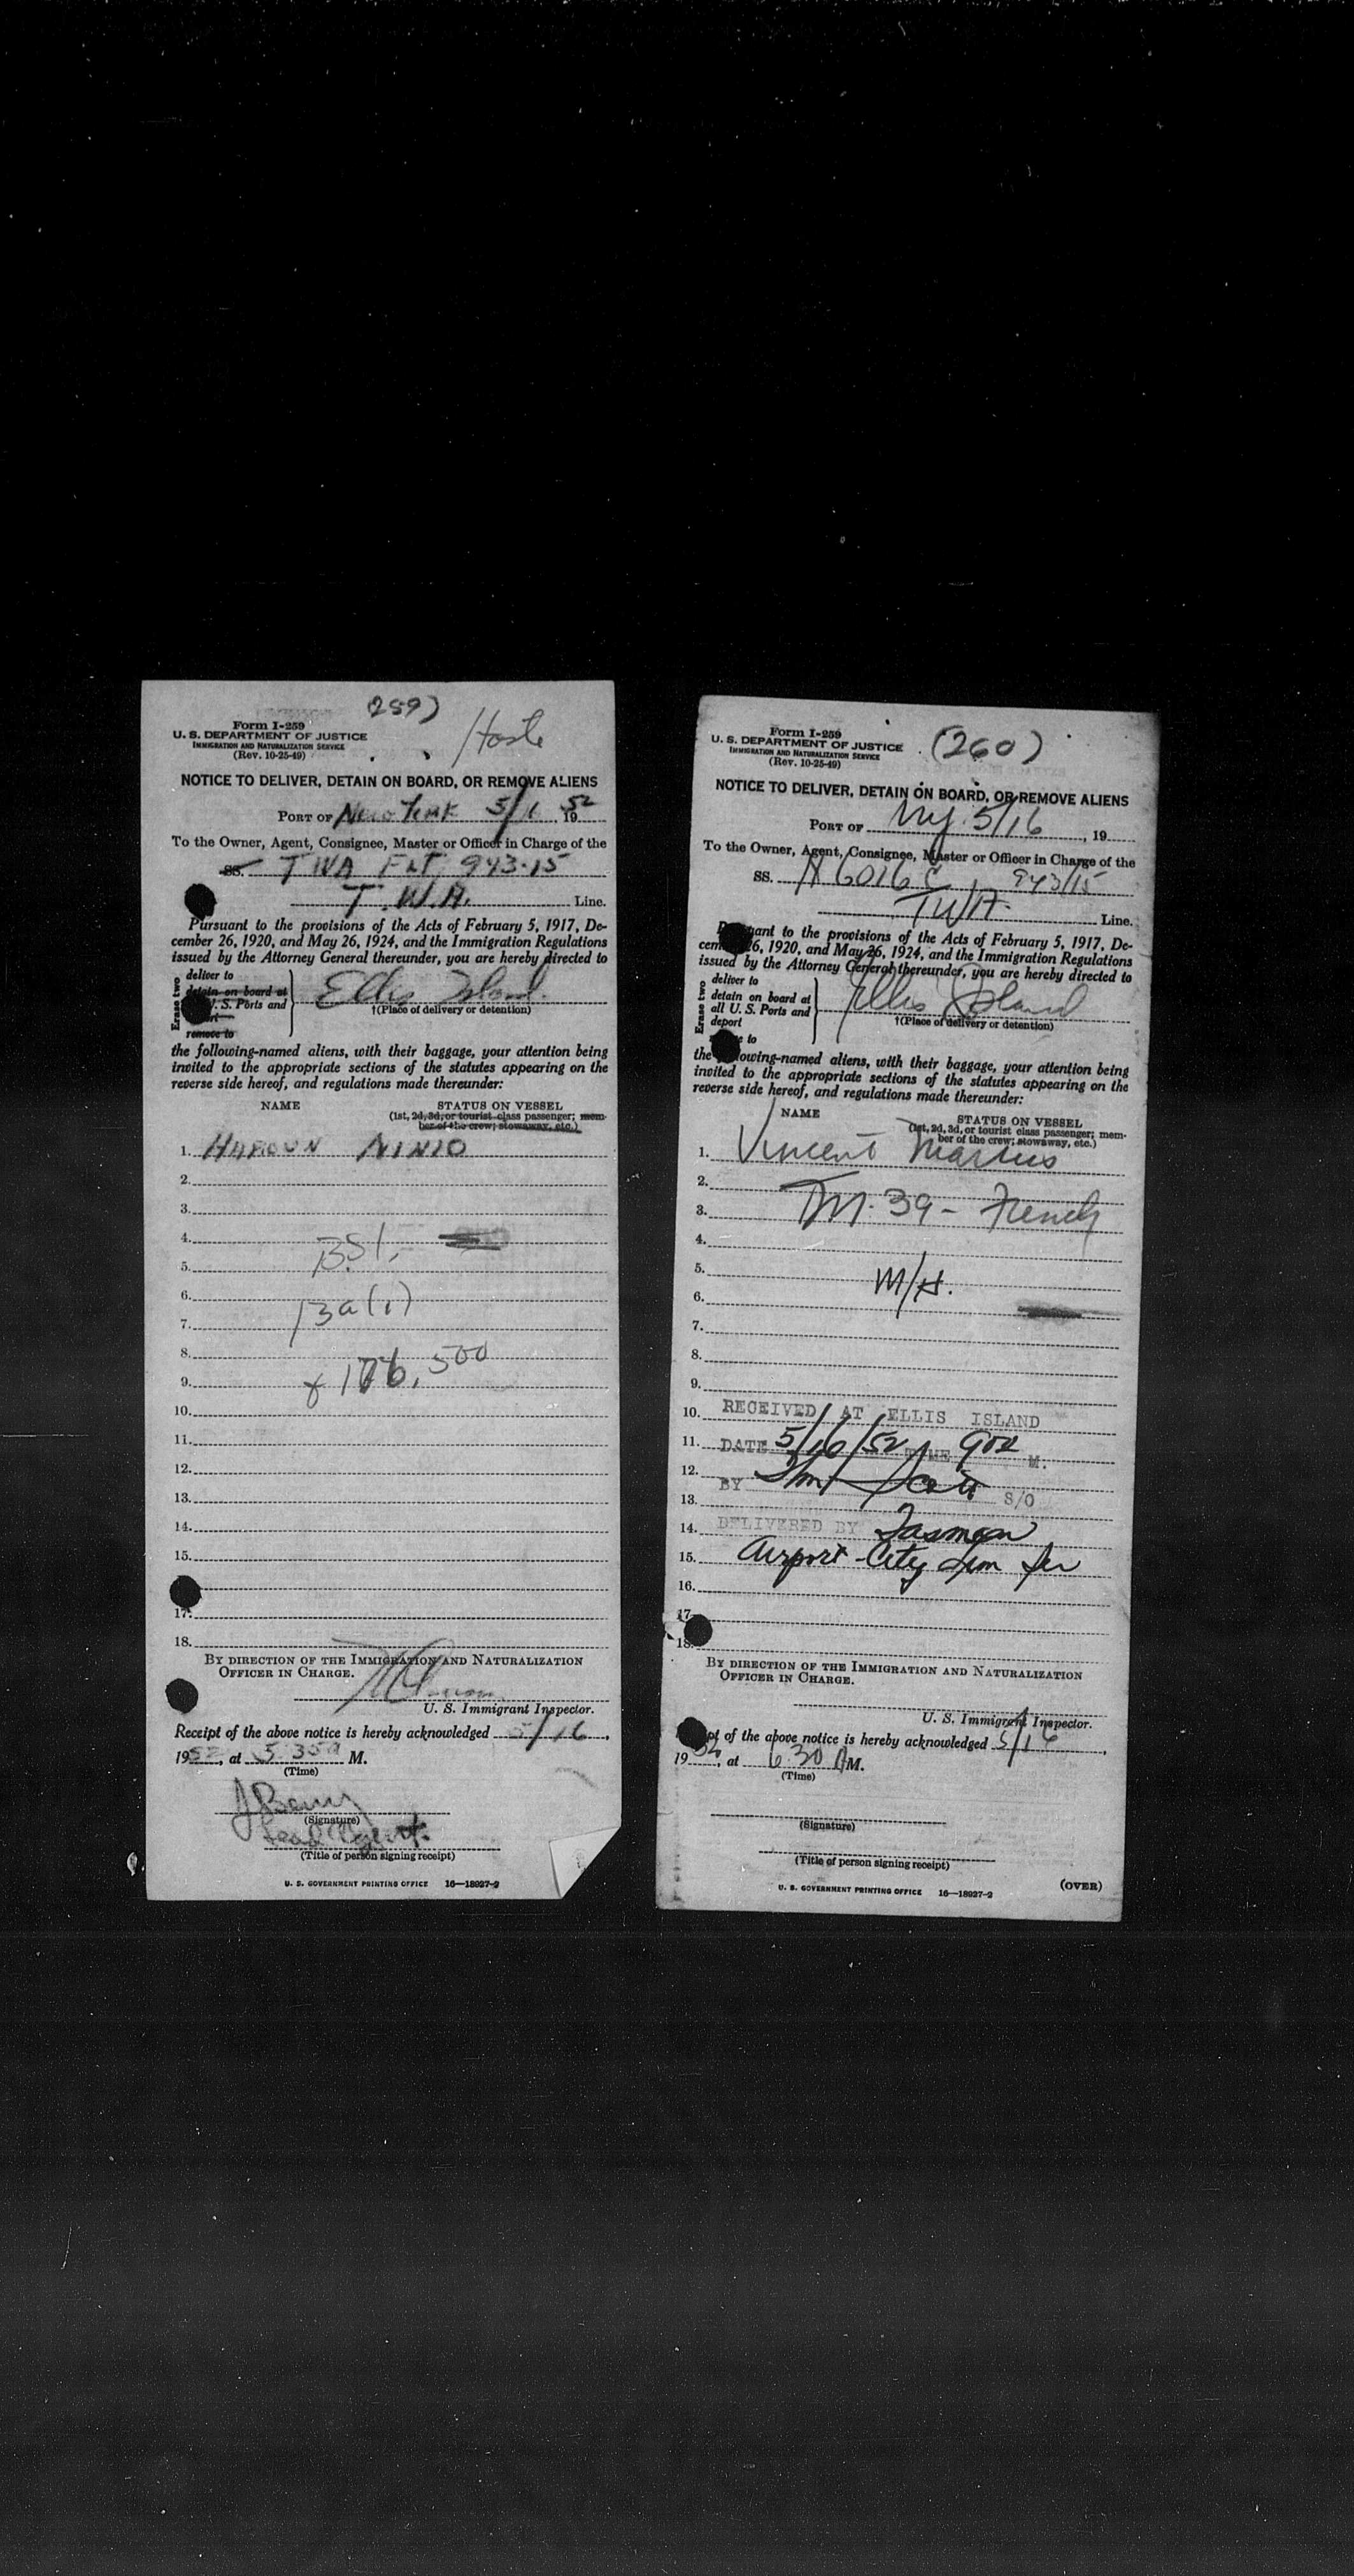 259)
Form I-259
U. S. DEPARTMENT OF JUSTICE
IMMIGRATION AND NATURALIZATION SERVICE
(Rev. 10-25-49)
NOTICE TO DELIVER, DETAIN ON BOARD, OR REMOVE ALIENS
PORT OF New York 5/1 , 1952
To the Owner, Agent, Consignee, Master or Officer in Charge of the
SS. TWA FLT. 943-15
T.W.A. Line.
Pursuant to the provisions of the Acts of February 5, 1917, De-
cember 26, 1920, and May 26, 1924, and the Immigration Regulations
issued by the Attorney General thereunder, you are hereby directed to
Erase two
deliver to
detain on board at
U. S. Ports and
remove to
Ellis Island.
†(Place of delivery or detention)
the following-named aliens, with their baggage, your attention being
invited to the appropriate sections of the statutes appearing on the
reverse side hereof, and regulations made thereunder:
NAME STATUS ON VESSEL
(1st, 2d, 3d, or tourist class passenger; mem-
ber of the crew; stowaway, etc.)
1. HAROUN NINIO
2.
3.
4.
5. BSI.
6.
7. 13a(1)
8.
9. 500
10.
11.
12.
13.
14.
15.
17.
18.
BY DIRECTION OF THE IMMIGRATION AND NATURALIZATION
OFFICER IN CHARGE.
U. S. Immigrant Inspector.
Receipt of the above notice is hereby acknowledged 5/16,
1952, at 5 35A M.
(Time)
(Signature)
Lead Agent.
(Title of person signing receipt)
U. S. GOVERNMENT PRINTING OFFICE 16—18927-2
Form I-259
U. S. DEPARTMENT OF JUSTICE (260)
IMMIGRATION AND NATURALIZATION SERVICE
(Rev. 10-25-49)
NOTICE TO DELIVER, DETAIN ON BOARD, OR REMOVE ALIENS
PORT OF NY. 5/16, 19
To the Owner, Agent, Consignee, Master or Officer in Charge of the
SS. N 6016 C 943/15
TWA. Line.
Pursuant to the provisions of the Acts of February 5, 1917, De-
cember 26, 1920, and May 26, 1924, and the Immigration Regulations
issued by the Attorney General thereunder, you are hereby directed to
Erase two
deliver to
detain on board at
all U. S. Ports and
deport
remove to
Ellis Island
†(Place of delivery or detention)
the following-named aliens, with their baggage, your attention being
invited to the appropriate sections of the statutes appearing on the
reverse side hereof, and regulations made thereunder:
NAME STATUS ON VESSEL
(1st, 2d, 3d, or tourist class passenger; mem-
ber of the crew; stowaway, etc.)
1. Vincent Marius
2.
3. M. 39 - French
4.
5. M/H.
6.
7.
8.
9.
10. RECEIVED AT ELLIS ISLAND
11. DATE 5/16/52 TIME 902 M.
12.
BY S/O
13.
14. DELIVERED BY
15. Airport City
16.
17.
18.
BY DIRECTION OF THE IMMIGRATION AND NATURALIZATION
OFFICER IN CHARGE.
U. S. Immigrant Inspector.
Receipt of the above notice is hereby acknowledged 5/16,
1952, at 6:30 A M.
(Time)
(Signature)
(Title of person signing receipt)
U. S. GOVERNMENT PRINTING OFFICE 16—18927-2 (OVER)